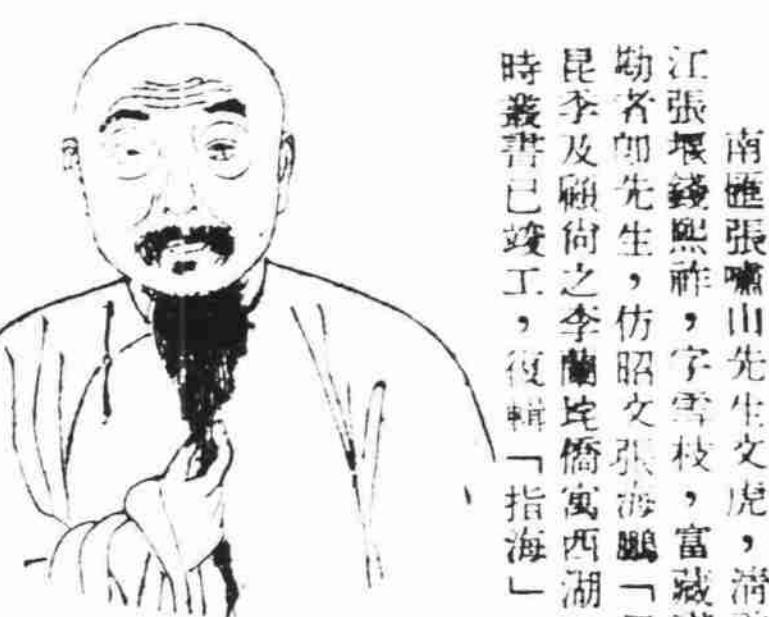 南匯張嘯山先生文虎，清
江張堰錢熙祚，字雪枝，富藏
勒者卽先生，仿昭文張海鵬「
昆季及顧尙之李蘭垞僑寓西湖
時叢書已竣工，復輯「指海」